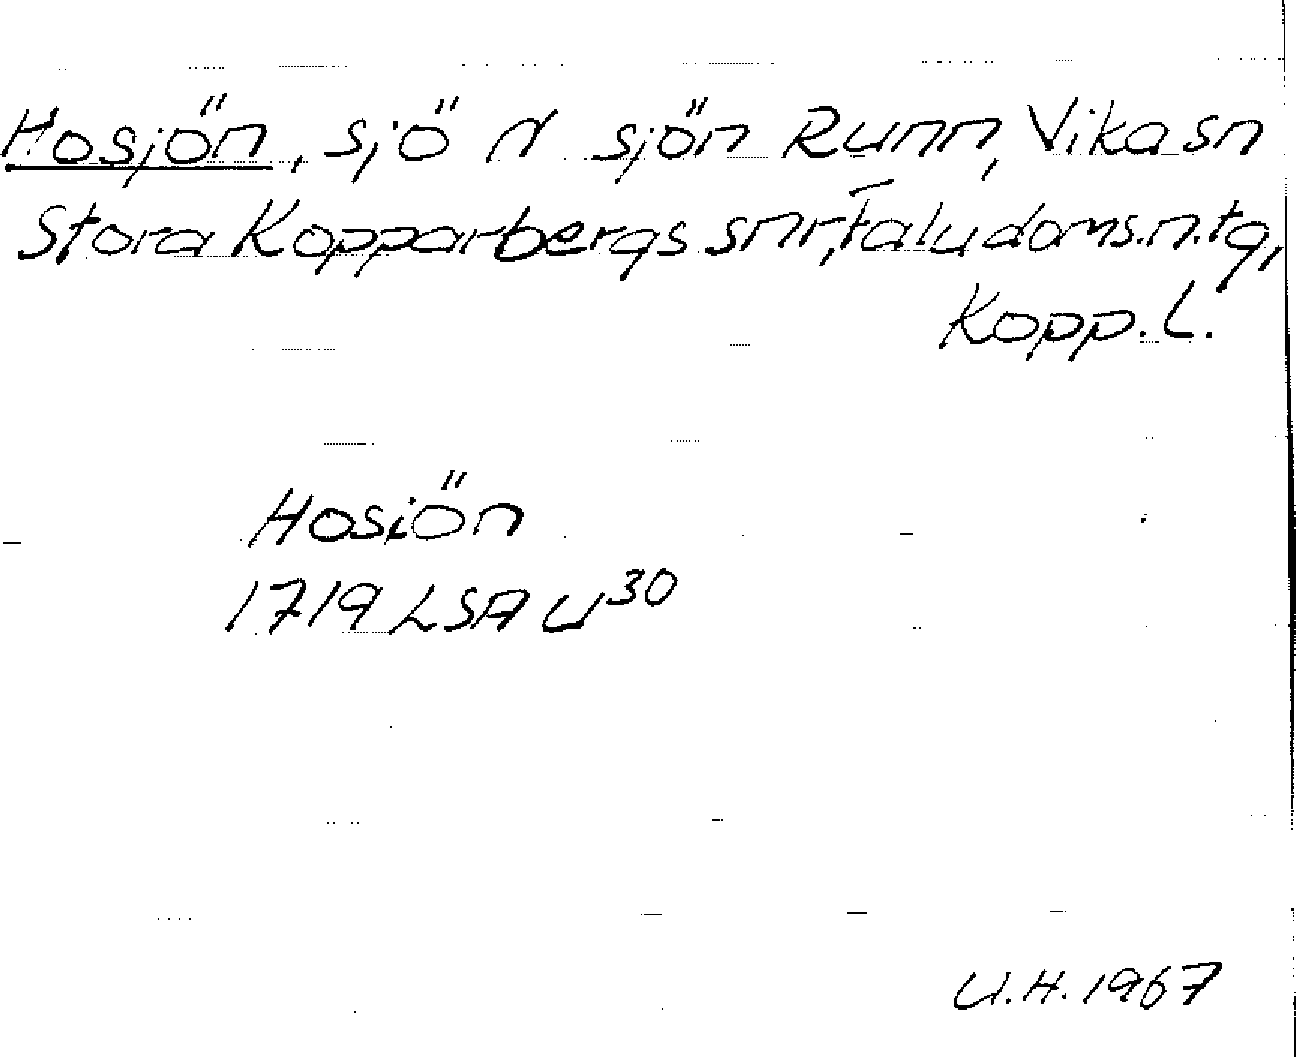 Hosjön, sjö N sjön Runn, Vika sn
Stora Kopparbergs snr, Falu doms.n.tg,
Kopp. L.
Hosiön
1719 LSA U30
U.H. 1967